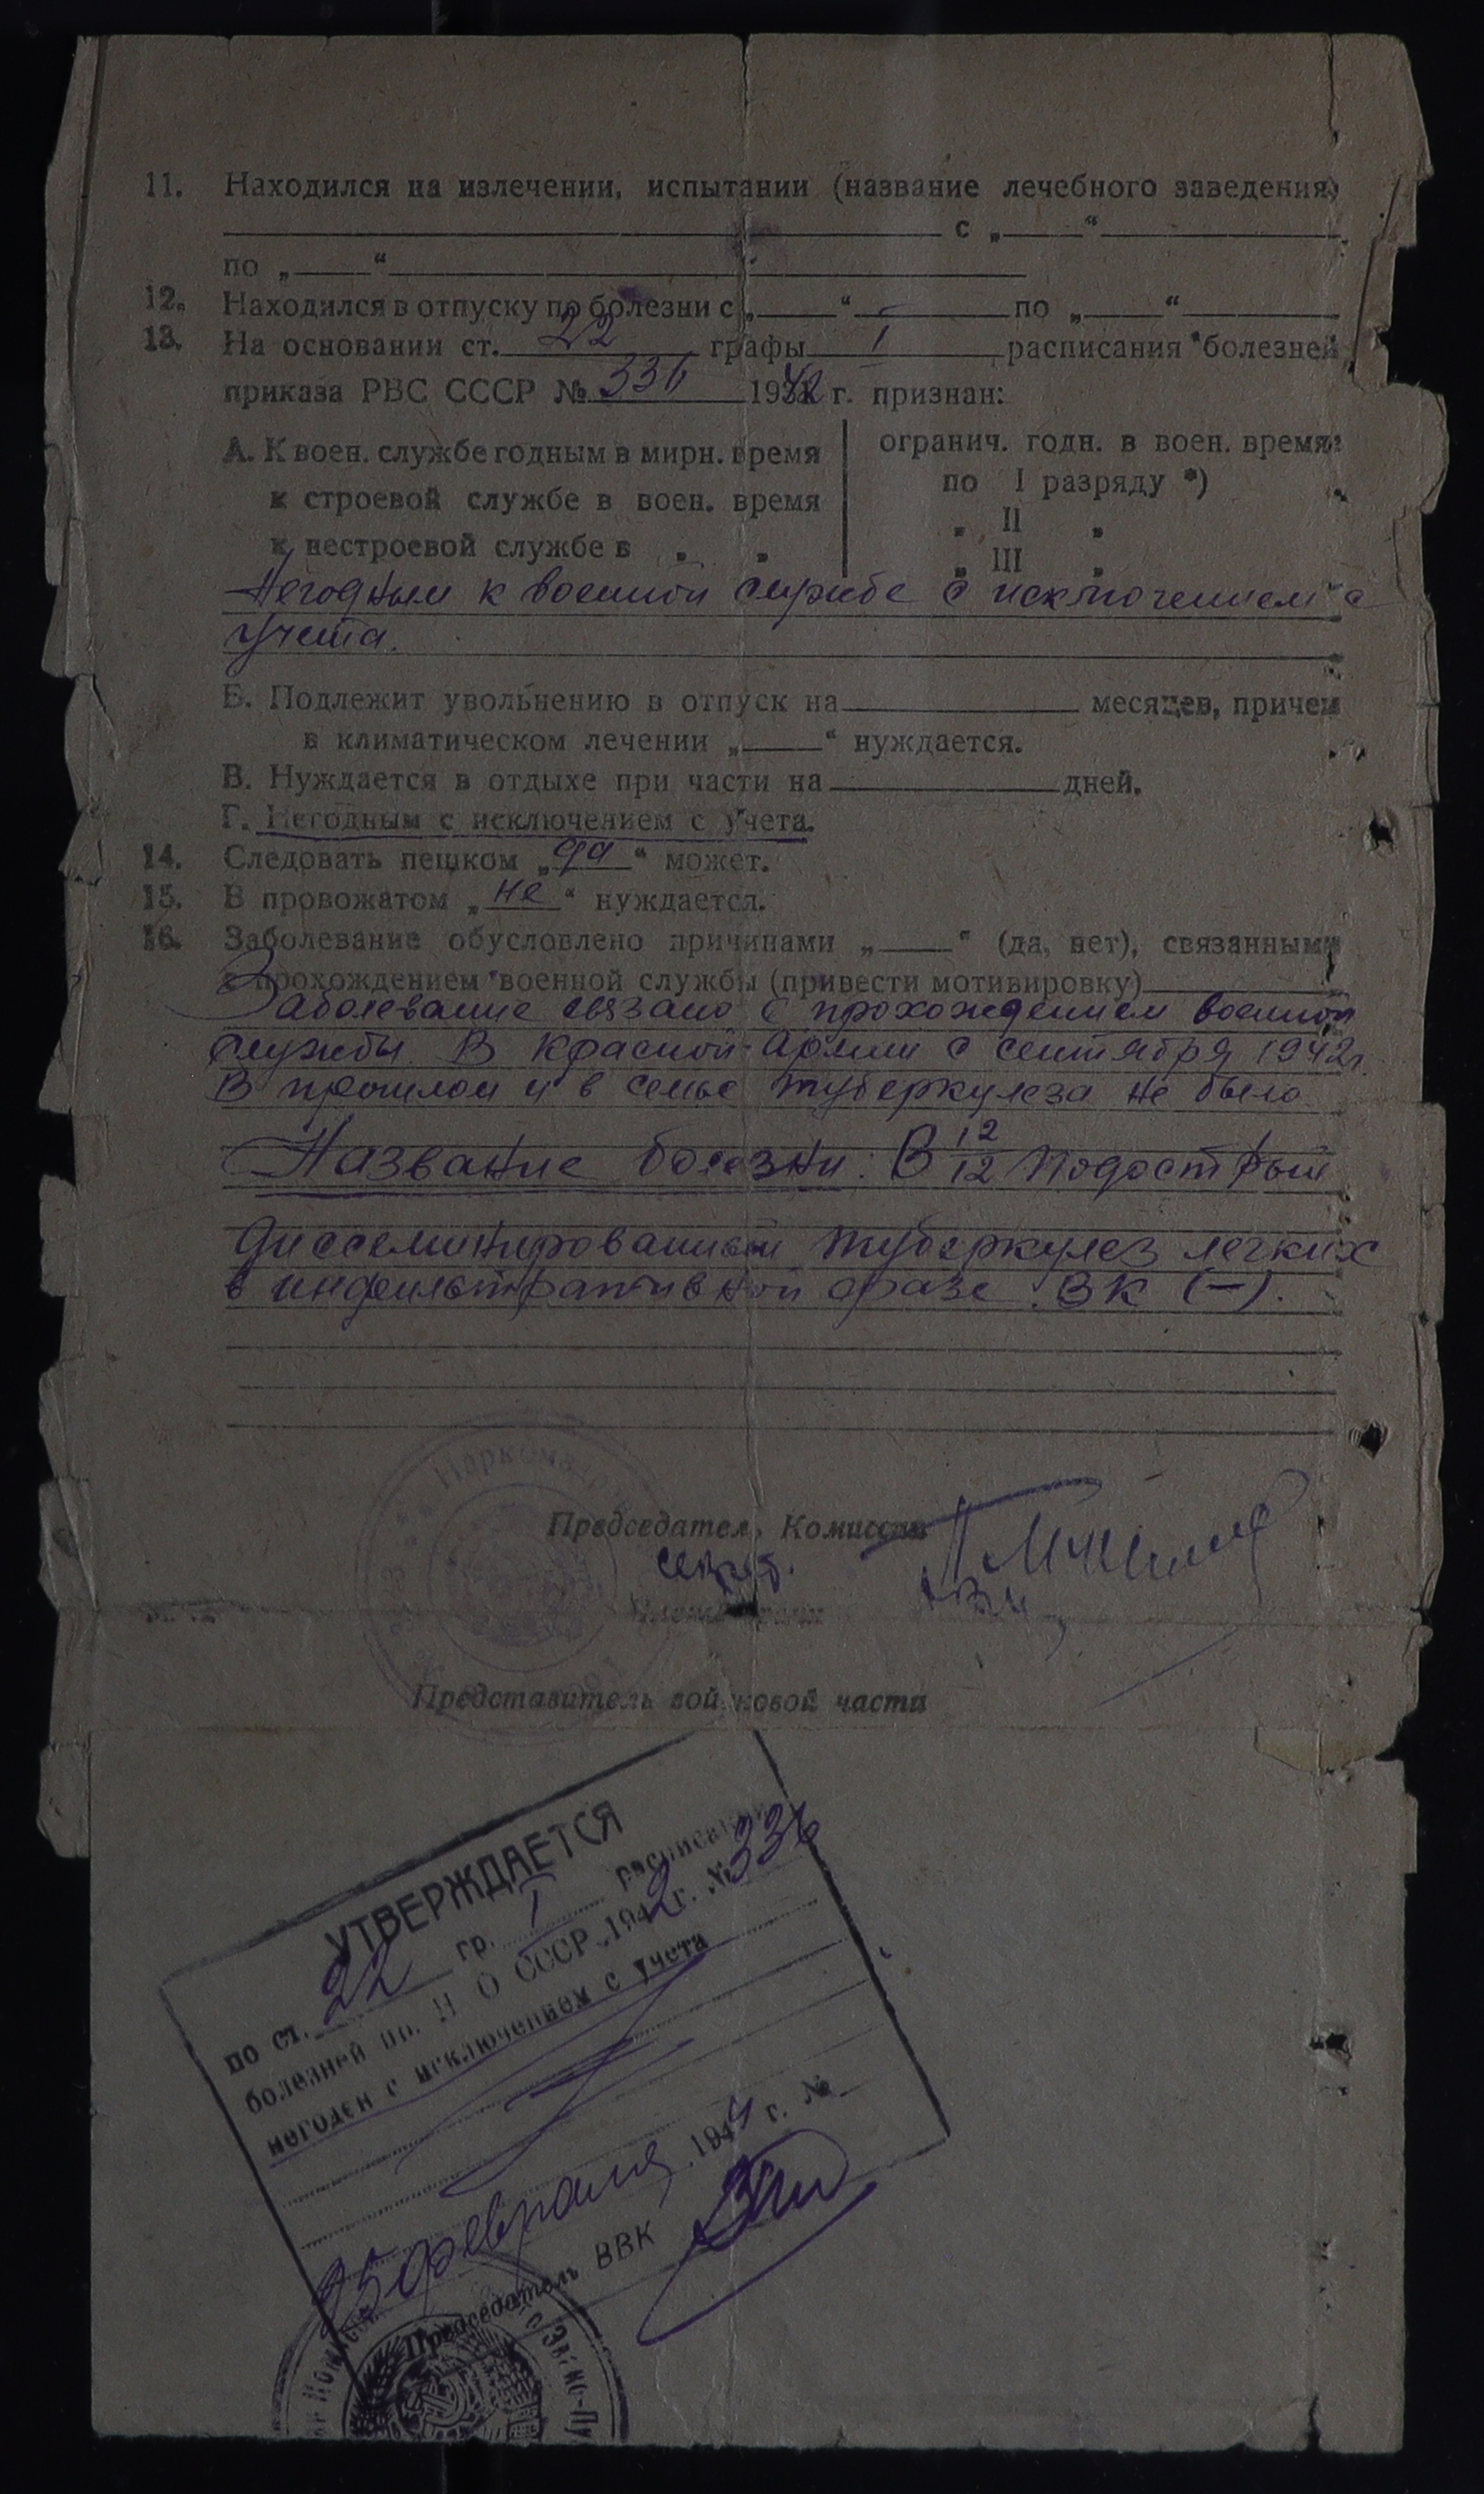 11. Находился на излечении, испытании (название лечебного заведения)
с „____“
по „____“
12. Находился в отпуску по болезни с „____“ по „____“
13. На основании ст. 22 графы I расписания болезней
приказа РВС СССР № 336 1942 г. признан:
А. К воен. службе годным в мирн. время
к строевой службе в воен. время
к нестроевой службе в „ „
огранич. годн. в воен. время:
по I разряду *)
„ II „
„ III „
Негодным к военной службе с исключением с
учета.
Б. Подлежит увольнению в отпуск на месяцев, причем
в климатическом лечении „____“ нуждается.
В. Нуждается в отдыхе при части на дней.
Г. Негодным с исключением с учета.
14. Следовать пешком „да“ может.
15. В провожатом „не“ нуждается.
16. Заболевание обусловлено причинами „____“ (да, нет), связанными
с прохождением военной службы (привести мотивировку)
Заболевание связано с прохождением военной
службы. В Красной Армии с сентября 1942г.
В прошлом и в семье туберкулеза не было
Название болезни: В 12/12 подострый
диссеминированный туберкулез легких
в инфильтративной фазе. ВК (-).
Наркомздрав
Председатель Комиссии
Представитель войсковой части
УТВЕРЖДАЕТСЯ
по ст. 22 гр. I расписания
болезней пр. Н О СССР 1942 г. № 336
негоден с исключением с учета
25 февраля 1944 г. №
Председатель ВВК